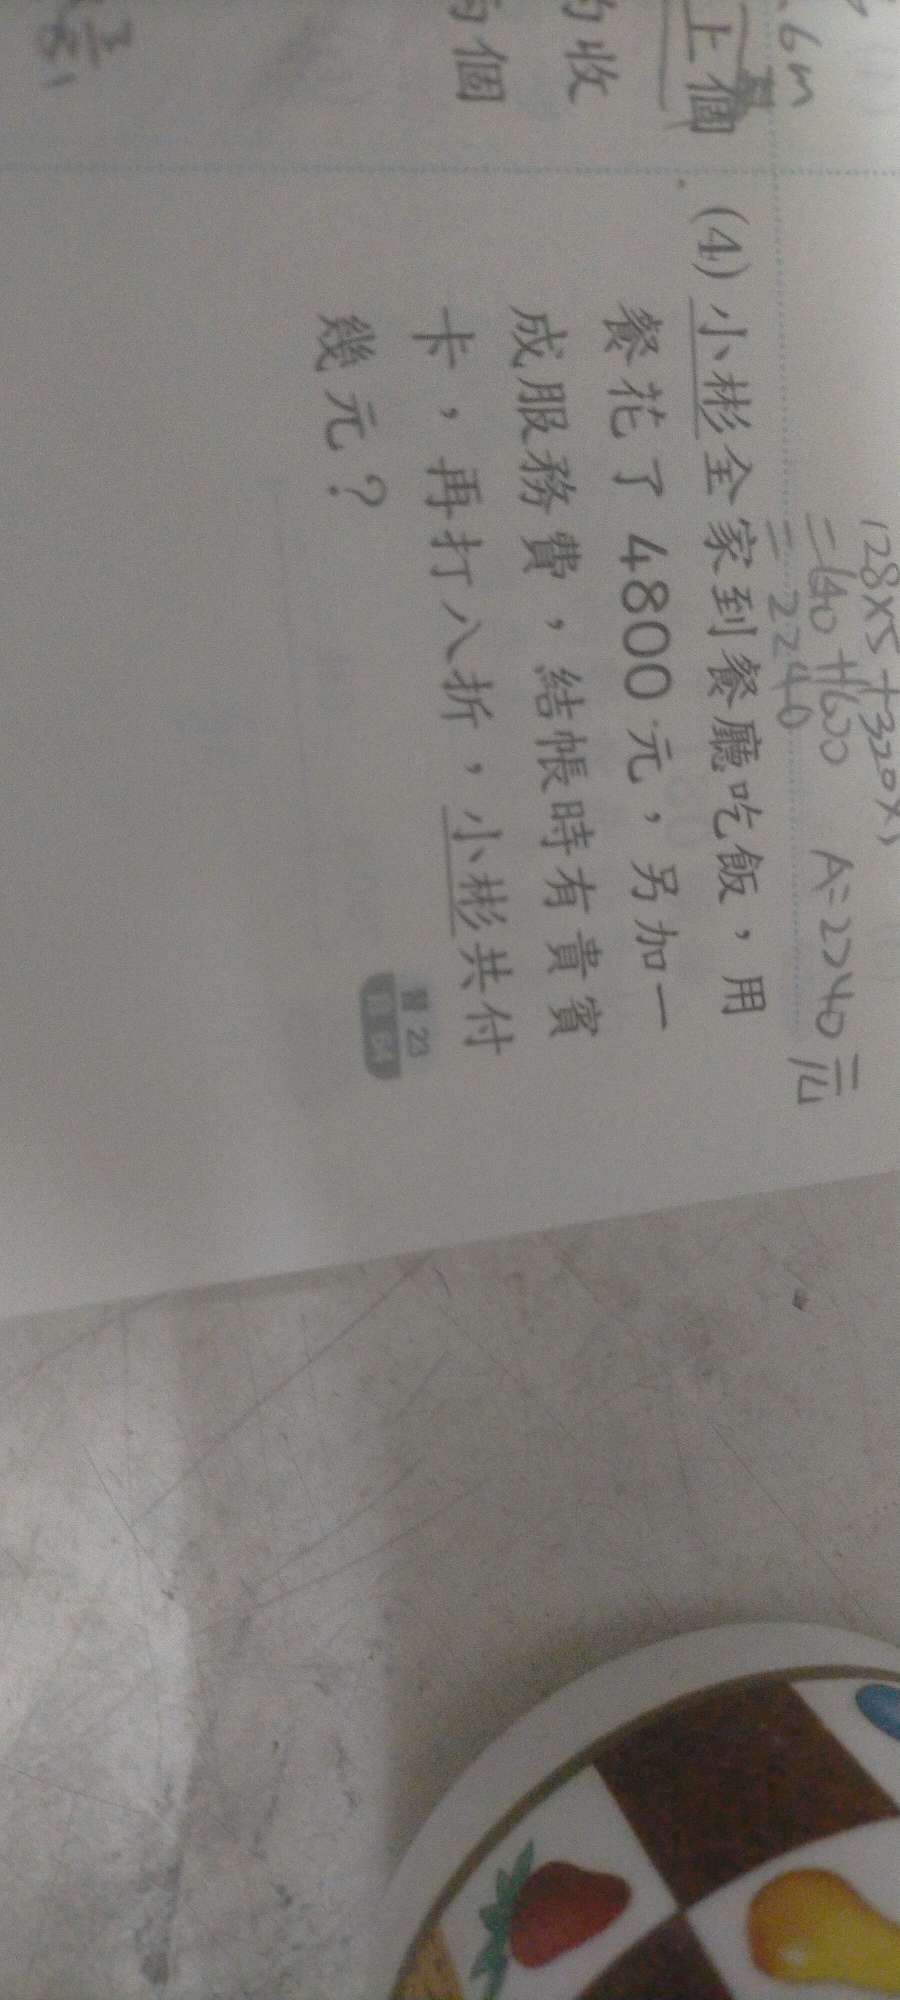 128×5+320×
=640+1600
=2240 A=2240元
上個
的收
個
(4)小彬全家到餐廳吃飯，用
餐花了4800元，另加一
成服務費，結帳時有貴賓
卡，再打八折，小彬共付
幾元？
習 23